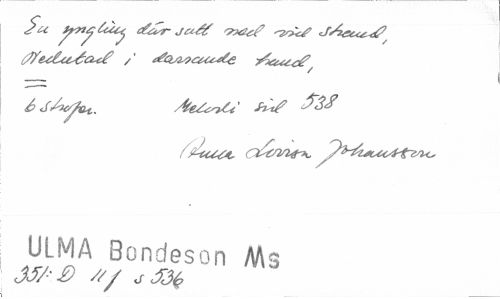 En yngling där satt ned vid strand,
Nedlutad i darrande hand,
6 strofer. Melodi sid 538
Anna Lovisa Johansson
ULMA Bondeson Ms
351:D 11f s 536